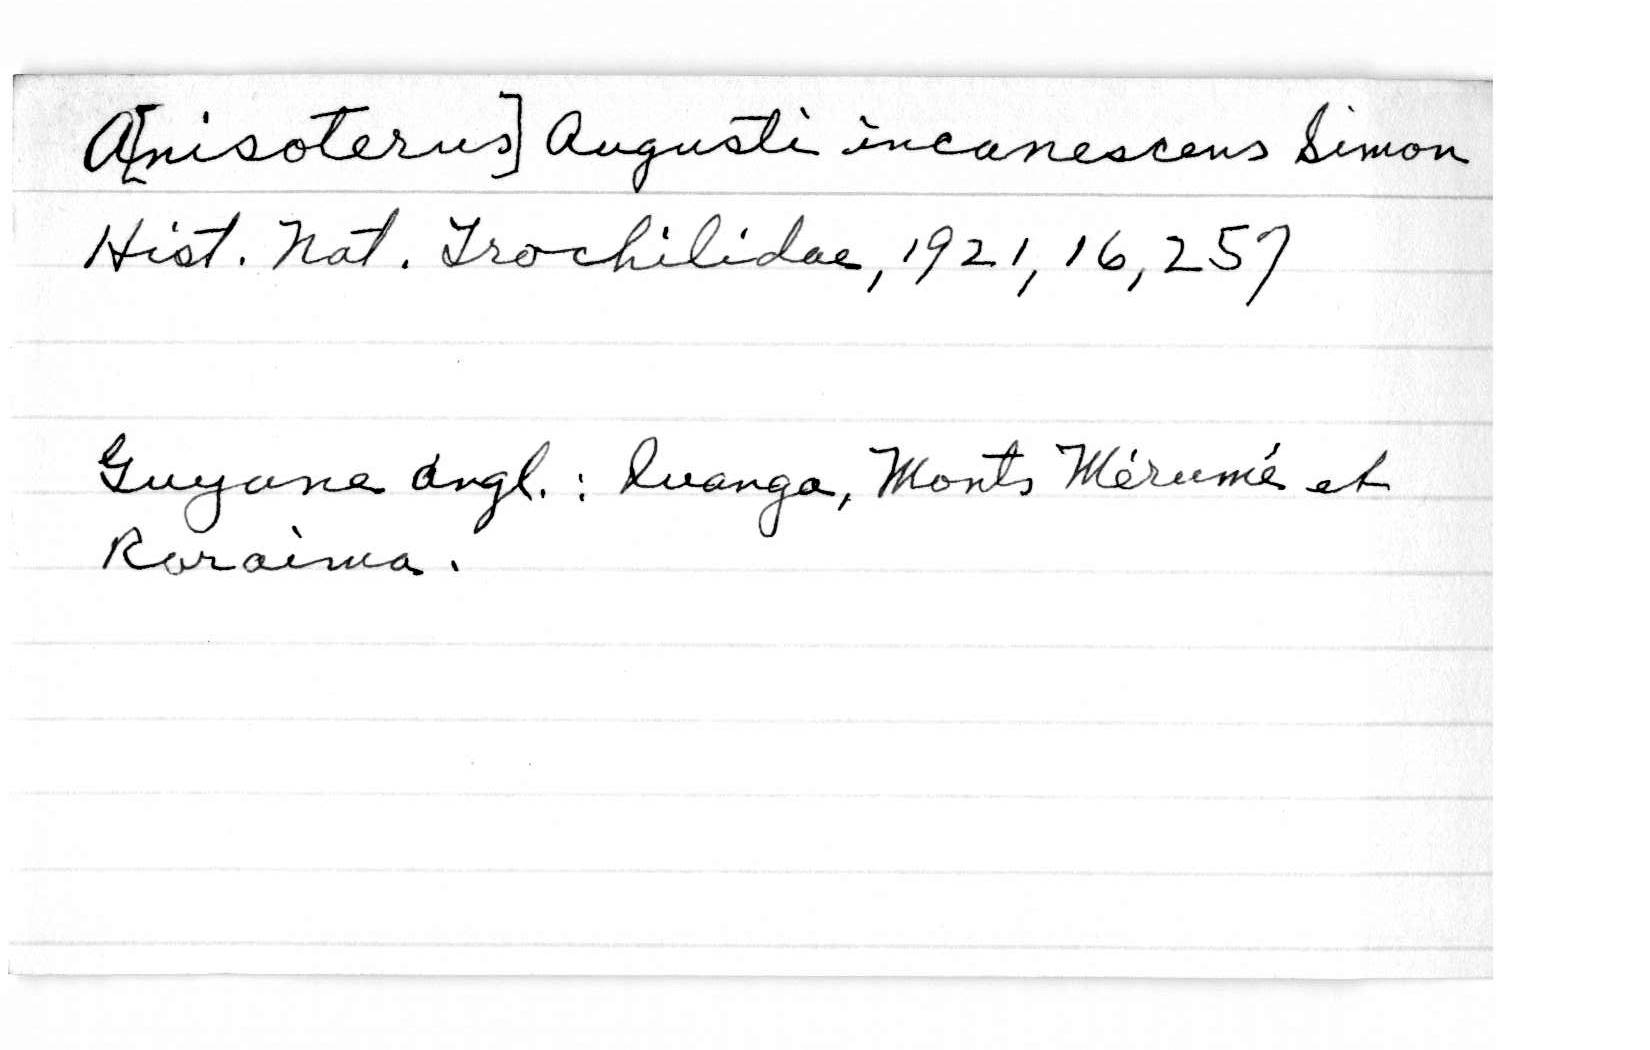 A[nisoterus] Augusti incanescens Simon
Hist. Nat. Trochilidae, 1921, 16, 257
Guyane Angl. : Quanga, Monts Mérumé et
Roraima.